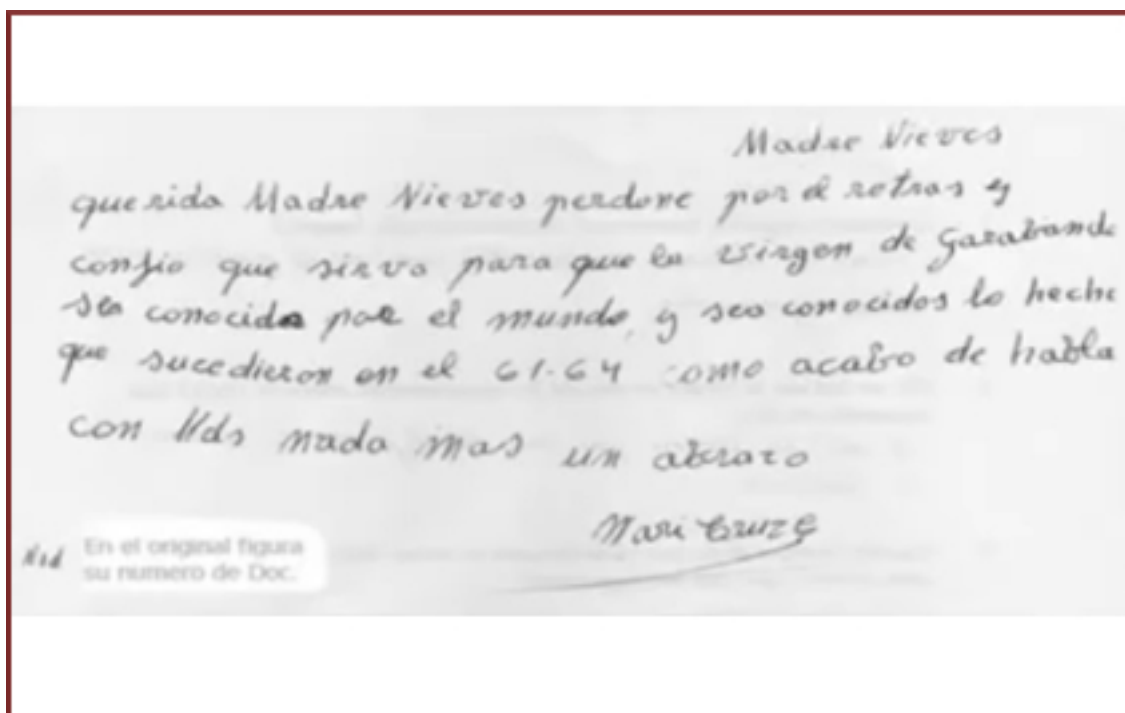 Madre Nieves
querida Madre Nieves perdone por el retras y
confio que sirva para que la Virgen de Garabanda
sea conocida por el mundo, y sea conocidos lo hecho
que sucedieron en el 61-64 como acabo de habla
con Uds nada mas un abrazo
Mari Cruz
En el original figura
su numero de Doc.